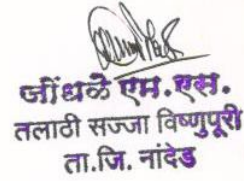 जोंधळे एम.एस.
तलाठी सज्जा विष्णुपूरी
ता.जि. नांदेड